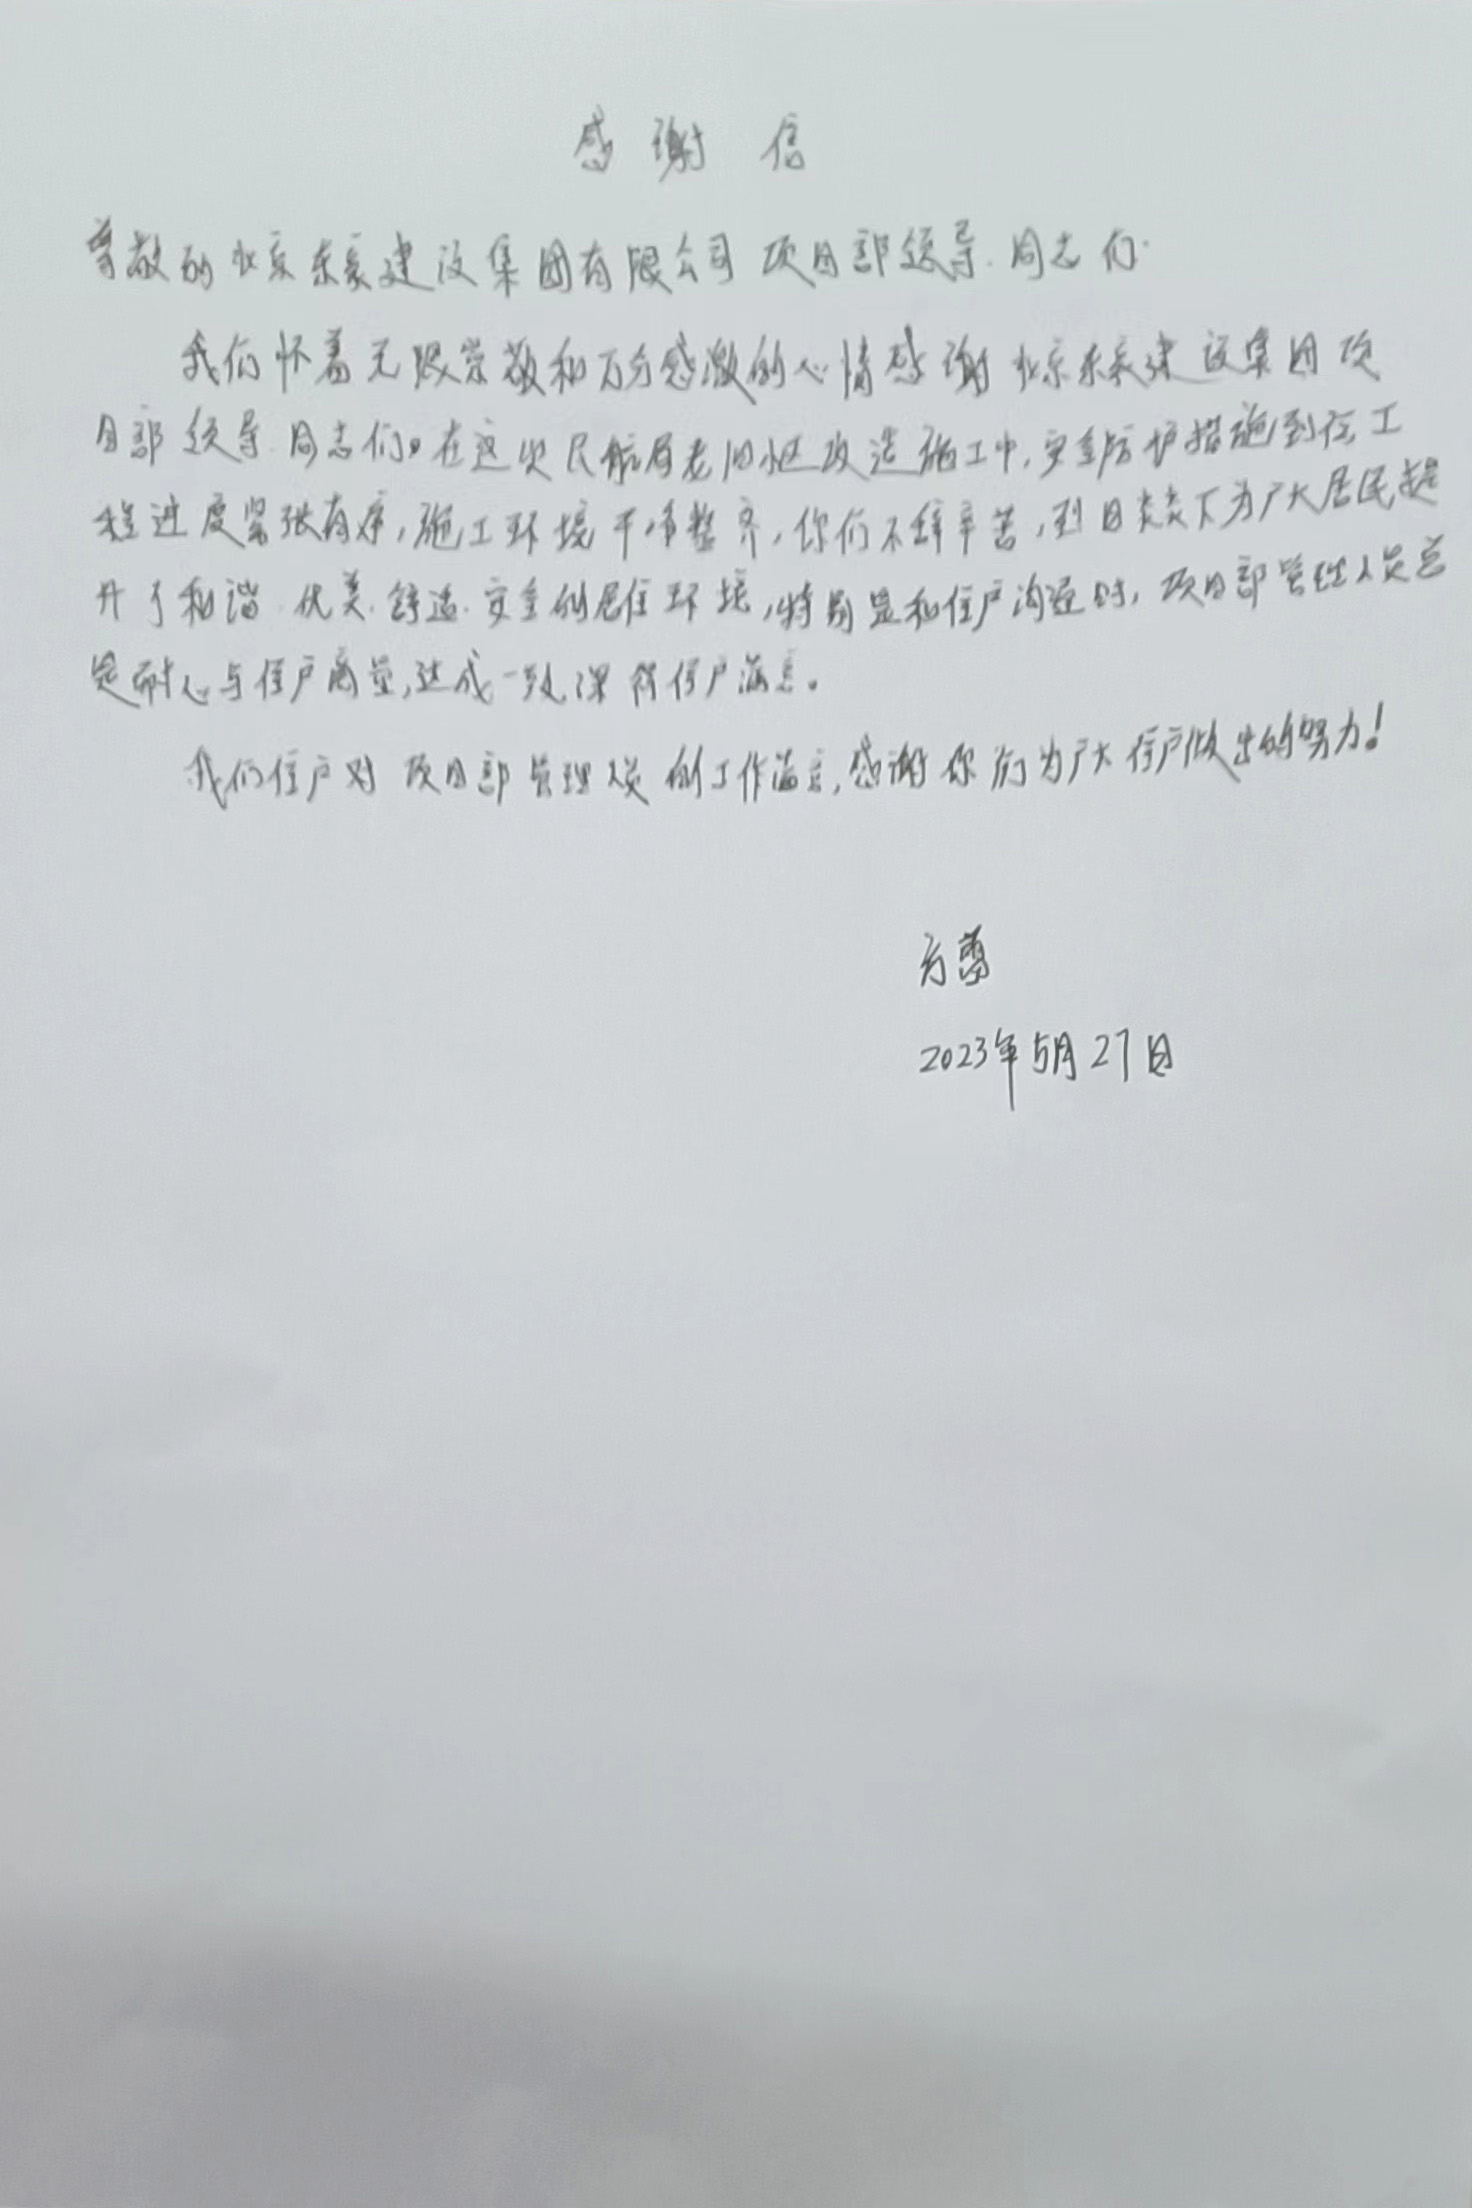 感谢信
尊敬的北京东豪建设集团有限公司项目部领导、同志们:
我们怀着无限崇敬和万分感激的心情感谢北京东豪建设集团项
目部领导、同志们。在这次民航局老旧小区改造施工中,安全防护措施到位,工
程进度紧张有序,施工环境干净整齐,你们不辞辛苦,烈日炎炎下为广大居民提
升了和谐、优美、舒适、安全的居住环境,特别是和住户沟通时,项目部管理人员总
是耐心与住户商量,达成一致,深得住户满意。
我们住户对项目部管理人员的工作满意,感谢你们为广大住户做出的努力!
方
2023年5月27日